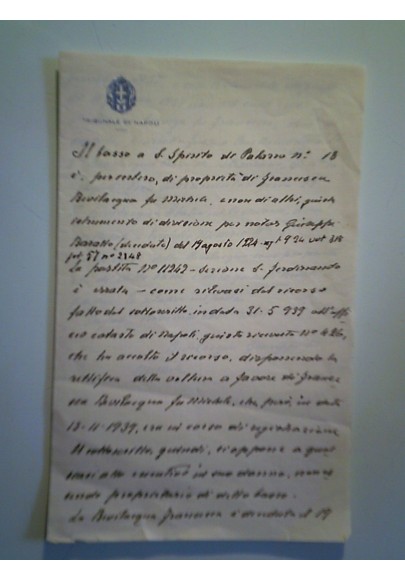 Il basso a S. Spirito di Palazzo n° 18
è, per intero, di proprietà di Francesca
Bevilacqua fu Michele, e non di altri, giusta
istrumento di divisione per notar Giuseppe
del 19 agosto 1924
fol. 57 n° 2348
La partita N° 11242 - sezione S. Ferdinando
è errata - come rilevasi dal ricorso
fatto dal sottoscritto, in data 31-5-939 all'uffi
cio catasto di Napoli, giusta ricevuta n° 426,
che ha accolto il ricorso, disponendo la
rettifica della voltura a favore di Frances
ca Bevilacqua fu Michele, che però, in data
13-11-1939, era in corso di registrazione
Il sottoscritto, quindi, si oppone a qual
siasi atto in suo danno,
endo proprietaria di detto basso.
La Bevilacqua Francesca è deceduta il 19